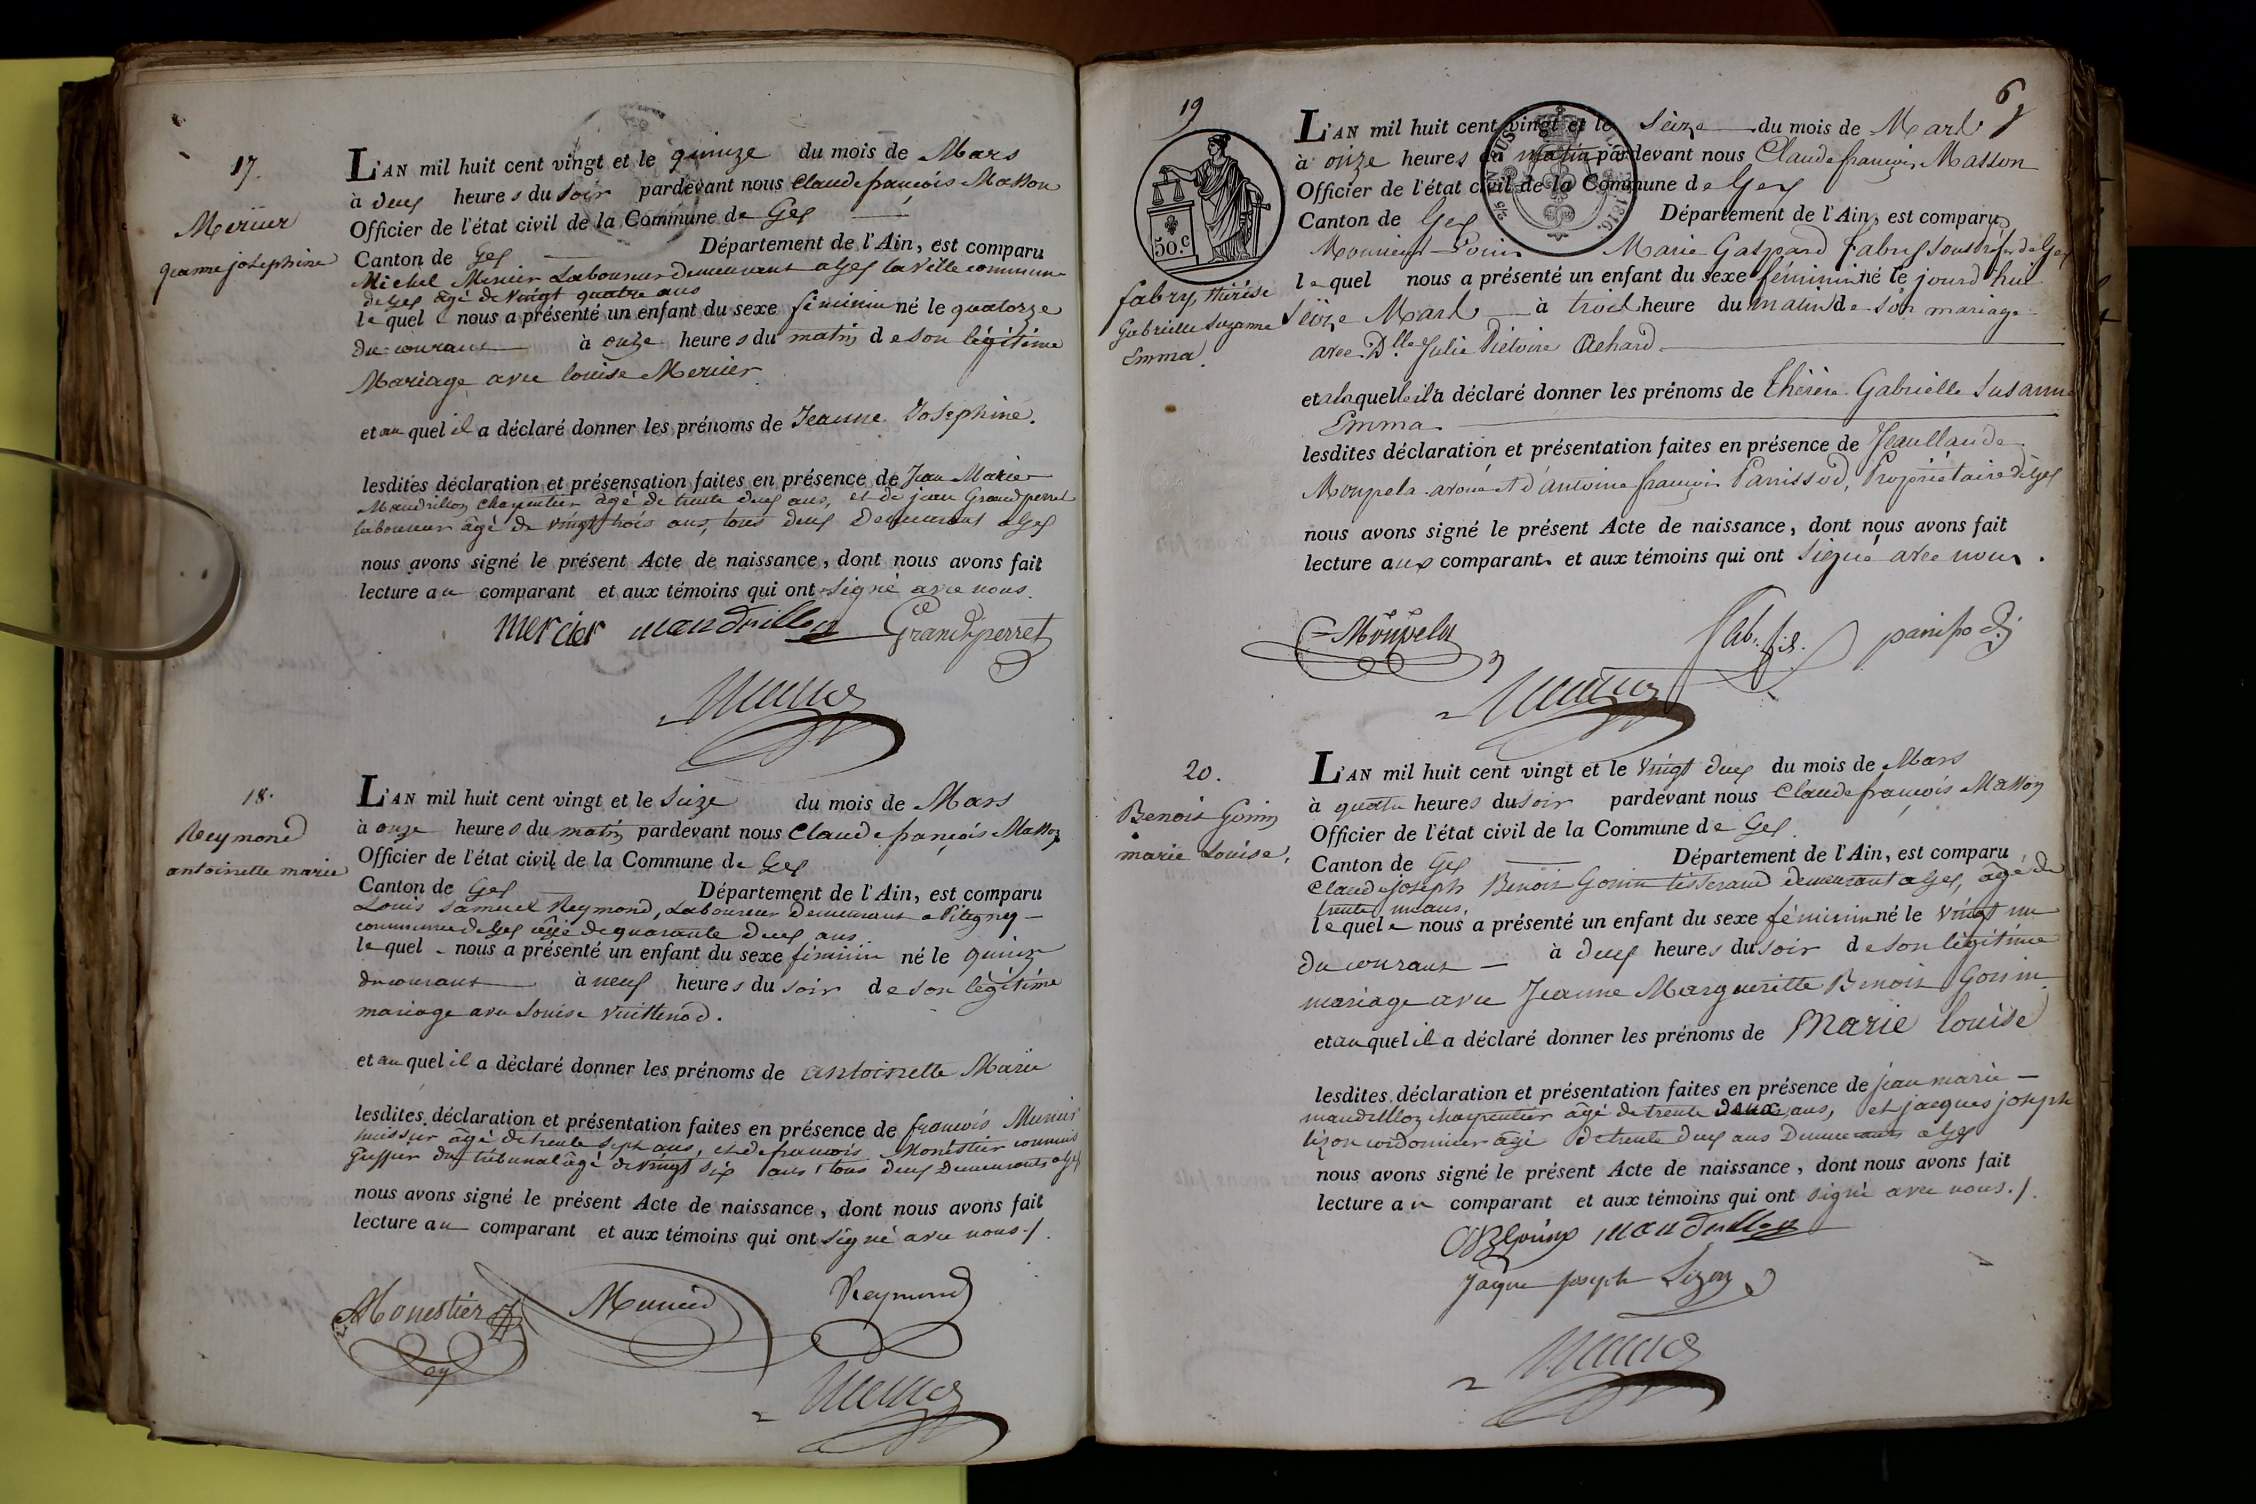 17.
Mercier
jeanne josephine
L'AN mil huit cent vingt et le quinze du mois de Mars
à deux heures du soir pardevant nous Claude françois Masson
Officier de l'état civil de la Commune de Gex
Canton de Gex Département de l'Ain, est comparu
Michel Mercier Laboureur demeurant a Gex la ville commune
de Gex âgé de vingt quatre ans
lequel nous a présenté un enfant du sexe féminin né le quatorze
du courant à onze heures du matin de son légitime
Mariage avec louise Mercier
et au quel il a déclaré donner les prénoms de Jeanne Josephine.
lesdites déclaration et présensation faites en présence de Jean Marie
Mandrillon Charpentier âgé de trente deux ans, et de jean Grandperret
laboureur âgé de vingt trois ans, tous deux Demeurant a Gex
nous avons signé le présent Acte de naissance, dont nous avons fait
lecture au comparant et aux témoins qui ont signé avec nous.
mercier mandrillon Grandperret
18.
Reymond
antoinette marie
L'AN mil huit cent vingt et le Seize du mois de Mars
à onze heures du matin pardevant nous Claude françois Masson
Officier de l'état civil de la Commune de Gex
Canton de Gex Département de l'Ain, est comparu
Louis Samuel Reymond, Laboureur demeurant a Pitegney
commune de Gex âgé de quarante deux ans
lequel nous a présenté un enfant du sexe féminin né le quinze
du courant à neuf heures du soir de son légitime
mariage avec Louise Vuillenod.
et au quel il a déclaré donner les prénoms de antoinette Marie
lesdites déclaration et présentation faites en présence de françois
huissier âgé de trente sept ans, et de francois Monestier commis
Greffier du tribunal âgé de vingt six ans, tous deux Demeurants a Gex
nous avons signé le présent Acte de naissance, dont nous avons fait
lecture au comparant et aux témoins qui ont signé avec nous./.
Monestier Reymond
6
19
50.c
1816
fabry, thérése
Gabrielle Suzanne
Emma.
L'AN mil huit cent vingt et le Seize du mois de Mars
à onze heures du matin pardevant nous Claude françois Masson
Officier de l'état civil de la Commune de Gex
Canton de Gex Département de l'Ain, est comparu
Monsieur Louis Marie Gaspard Fabry Sous Préfet de Gex
lequel nous a présenté un enfant du sexe féminin né le jourd'hui
Seize Mars à trois heure du matin de son mariage
avec Dlle. Julie Victoire Rehard
et a laquelle il a déclaré donner les prénoms de Thérèse Gabrielle Susanne
Emma
lesdites déclaration et présentation faites en présence de Jean Claude
Moupela avoué et d'antoine françois Panissod, Propriétaire à Gex
nous avons signé le présent Acte de naissance, dont nous avons fait
lecture aux comparants et aux témoins qui ont signé avec nous.
Moupela panissod
20.
Benoit Gonin
marie Louise,
L'AN mil huit cent vingt et le vingt deux du mois de Mars
à quatre heures du soir pardevant nous Claude françois Masson
Officier de l'état civil de la Commune de Gex.
Canton de Gex Département de l'Ain, est comparu
Claude joseph Benoit Gonin tisserand demeurant a Gex, âgé de
trente un ans.
lequel nous a présenté un enfant du sexe féminin né le vingt un
du courant à deux heures du soir de son légitime
mariage avec Jeanne Margueritte Benoit Gonin
et au quel il a déclaré donner les prénoms de Marie louise
lesdites déclaration et présentation faites en présence de jean marie
mandrillon charpentier âgé de trente deux ans, et jacques joseph
lizon cordonnier âgé de trente deux ans Demeurants a Gex
nous avons signé le présent Acte de naissance, dont nous avons fait
lecture au comparant et aux témoins qui ont signé avec nous./.
mandrillon
Jaque Joseph Lizon